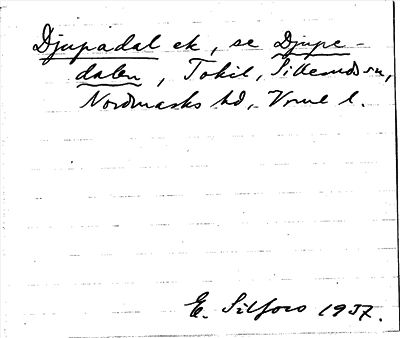 Djupadal ek, se Djupe-
dalen, Tokil, Sillerud sn,
Nordmarks hd, Vrml l.
E. Silfors 1937.